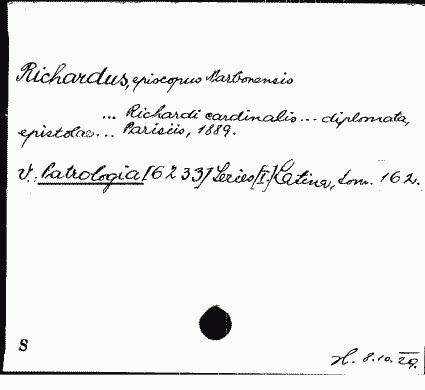 Richardus, episcopus Narbonensis
... Richardi cardinalis... diplomata,
epistolae... Parisiis, 1889.
V. Patrologia [6233] Series [I] Latina, tom. 162.
S
H. 8.10.29.